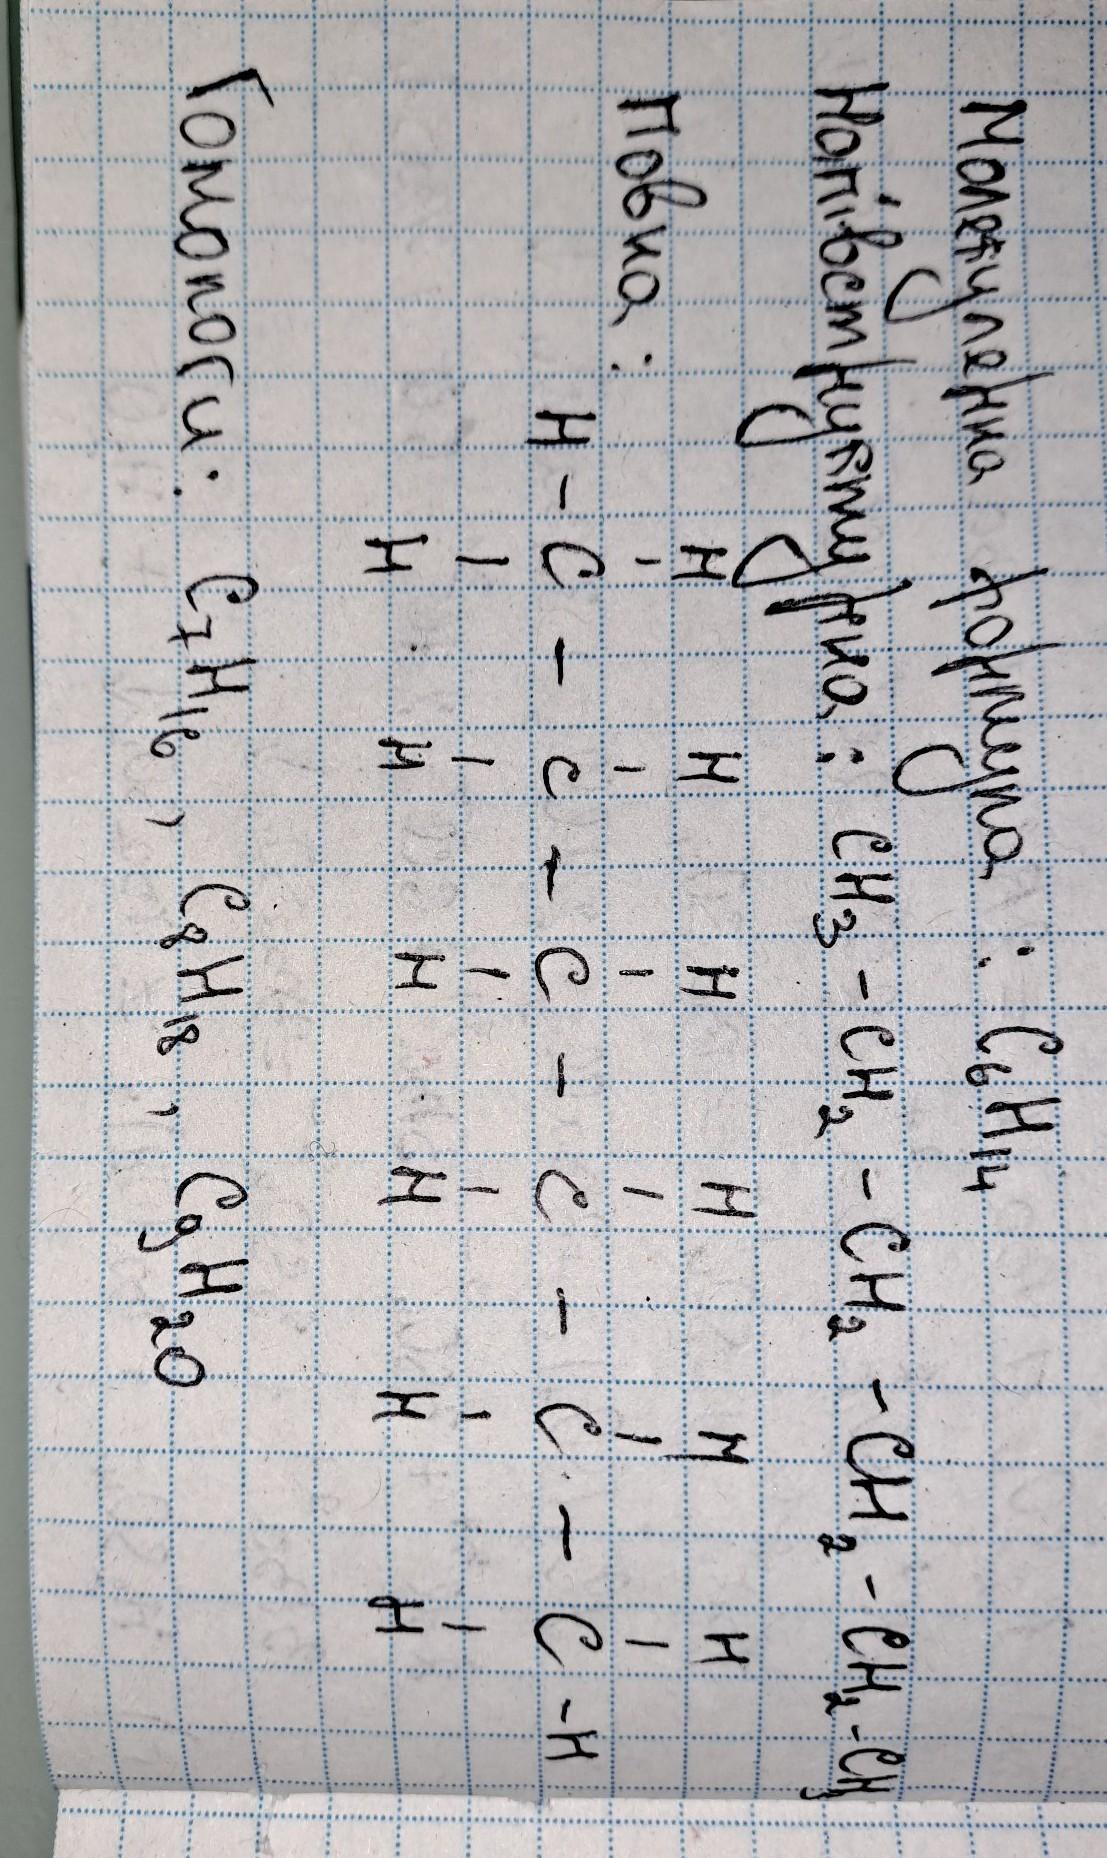 Молекулерна формула : C₆H₁₄
Напівструктурна : CH₃ - CH₂ - CH₂ - CH₂ - CH₂ - CH₃
Повна :
H H H H H H
| | | | | |
H - C - C - C - C - C - C - H
| | | | | |
H H H H H H
Гомологи : C₇H₁₆, C₈H₁₈, C₉H₂₀